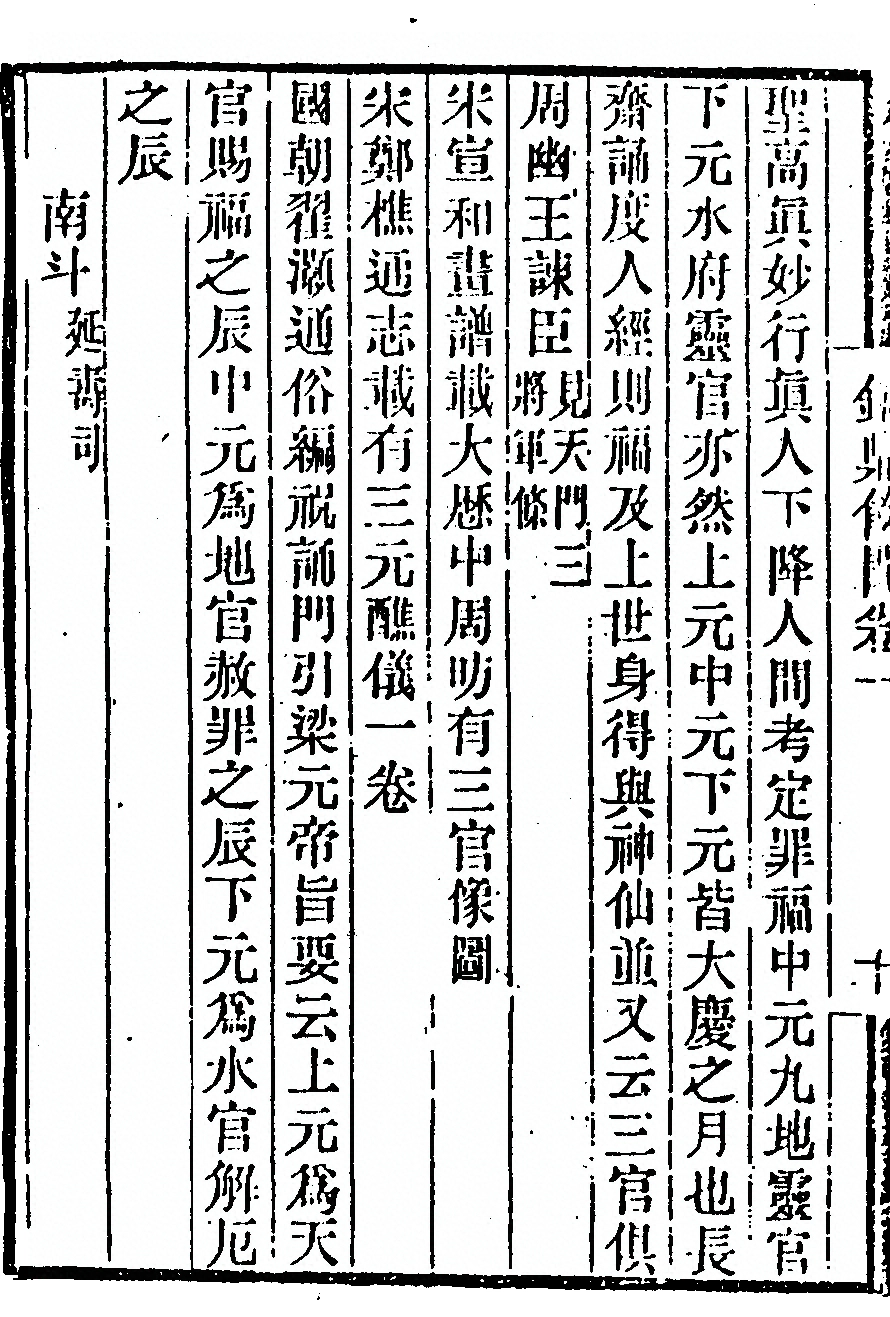 聖高眞妙行眞人下降人間考定罪福中元九地靈官
下元水府靈官亦然上元中元下元皆大慶之月也長
齋誦度人經則福及上世身得與神仙並又云三官俱
周幽王諫臣見天門三
將軍條
宋宣和畫譜載大歷中周昉有三官像圖
宋鄭樵通志載有三元醮儀一卷
國朝翟灝通俗編祝誦門引梁元帝旨要云上元爲天
官賜福之辰中元爲地官赦罪之辰下元爲水官解厄
之辰
南斗延壽司